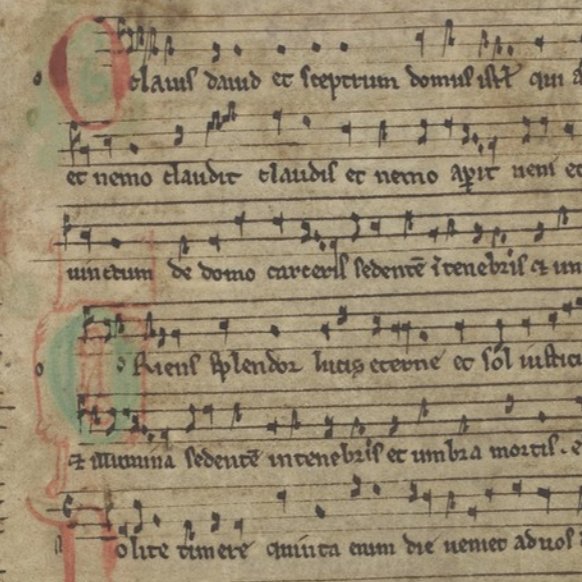 O clauis dauid et sceptrum domus isrl qui a
et nemo claudit claudis et nemo aperit ueni et
uinctum de domo carceris sedentē ī tenebris ⁊ um
O Riens splendor lucis eterne et sol iustici
⁊ illumina sedentē in tenebris et umbra mortis. e
Nolite timere quinta enim die ueniet ad uos